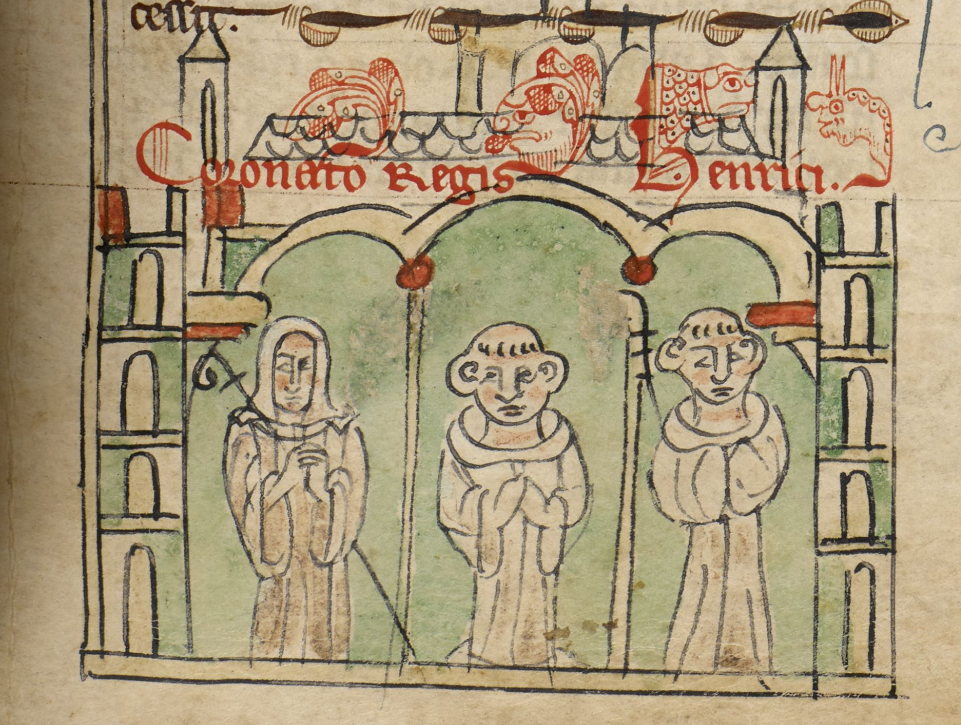 cessit.
Coronatio Regis Henrici.